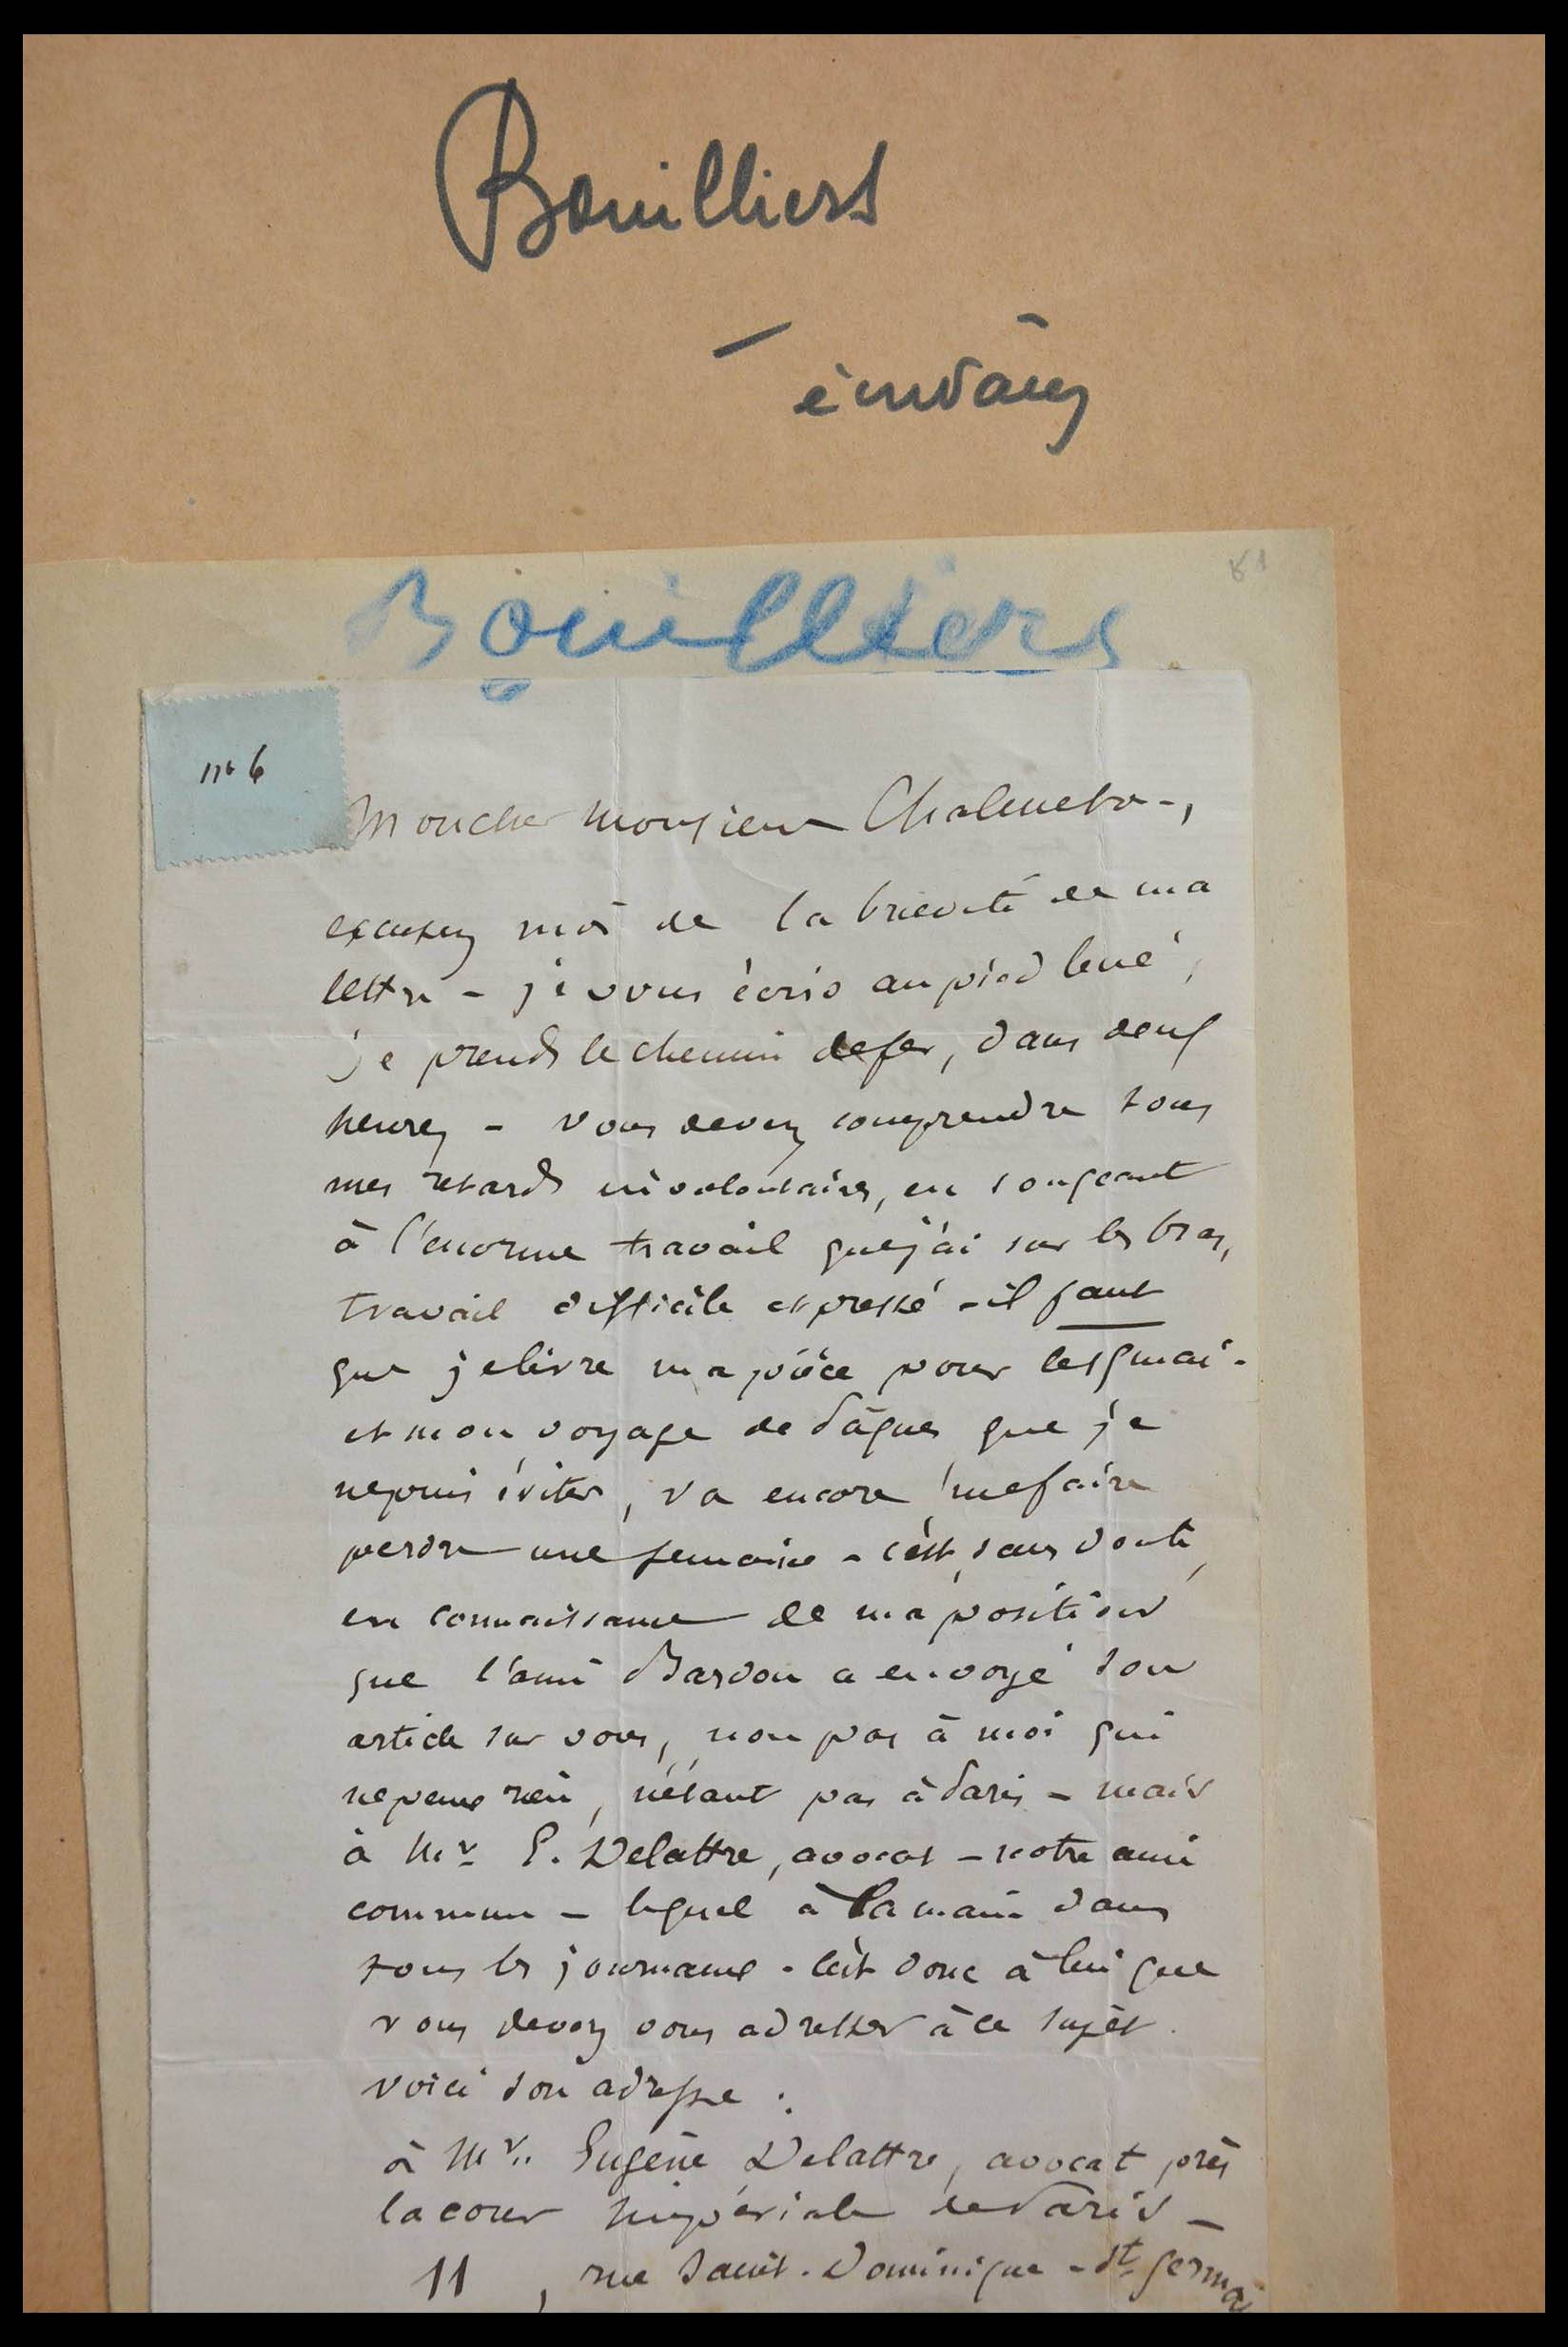 Bouilhers
Bouilhers
no 6
Mon cher monsieur
excusez moi de la brieveté de ma
lettre - je vous écris au pied levé,
je prends le chemin de fer, dans deux
heures - vous devez comprendre tous
mes retards involontaires, en songeant
à l'enorme travail que j'ai sur les bras,
travail difficile et pressé - il faut
que je livre ma pièce pour les mai -
et mon voyage de Pâques que je
ne puis éviter, va encore me faire
perdre une semaine - c'est, sans doute,
en connaissance de ma position
que l'ami Bardou a envoyé son
article sur vous, non pas à moi qui
ne peux rien, n'étant pas à Paris - mais
à Mr E. Delattre, avocat - notre ami
commun - lequel à la main dans
tous les journaux - c'est donc à lui que
vous devez vous adresser à ce sujet.
voici son adresse :
à Mr. Eugène Delattre, avocat près
la cour impériale de Paris -
11, rue Saint-Dominique - St germai